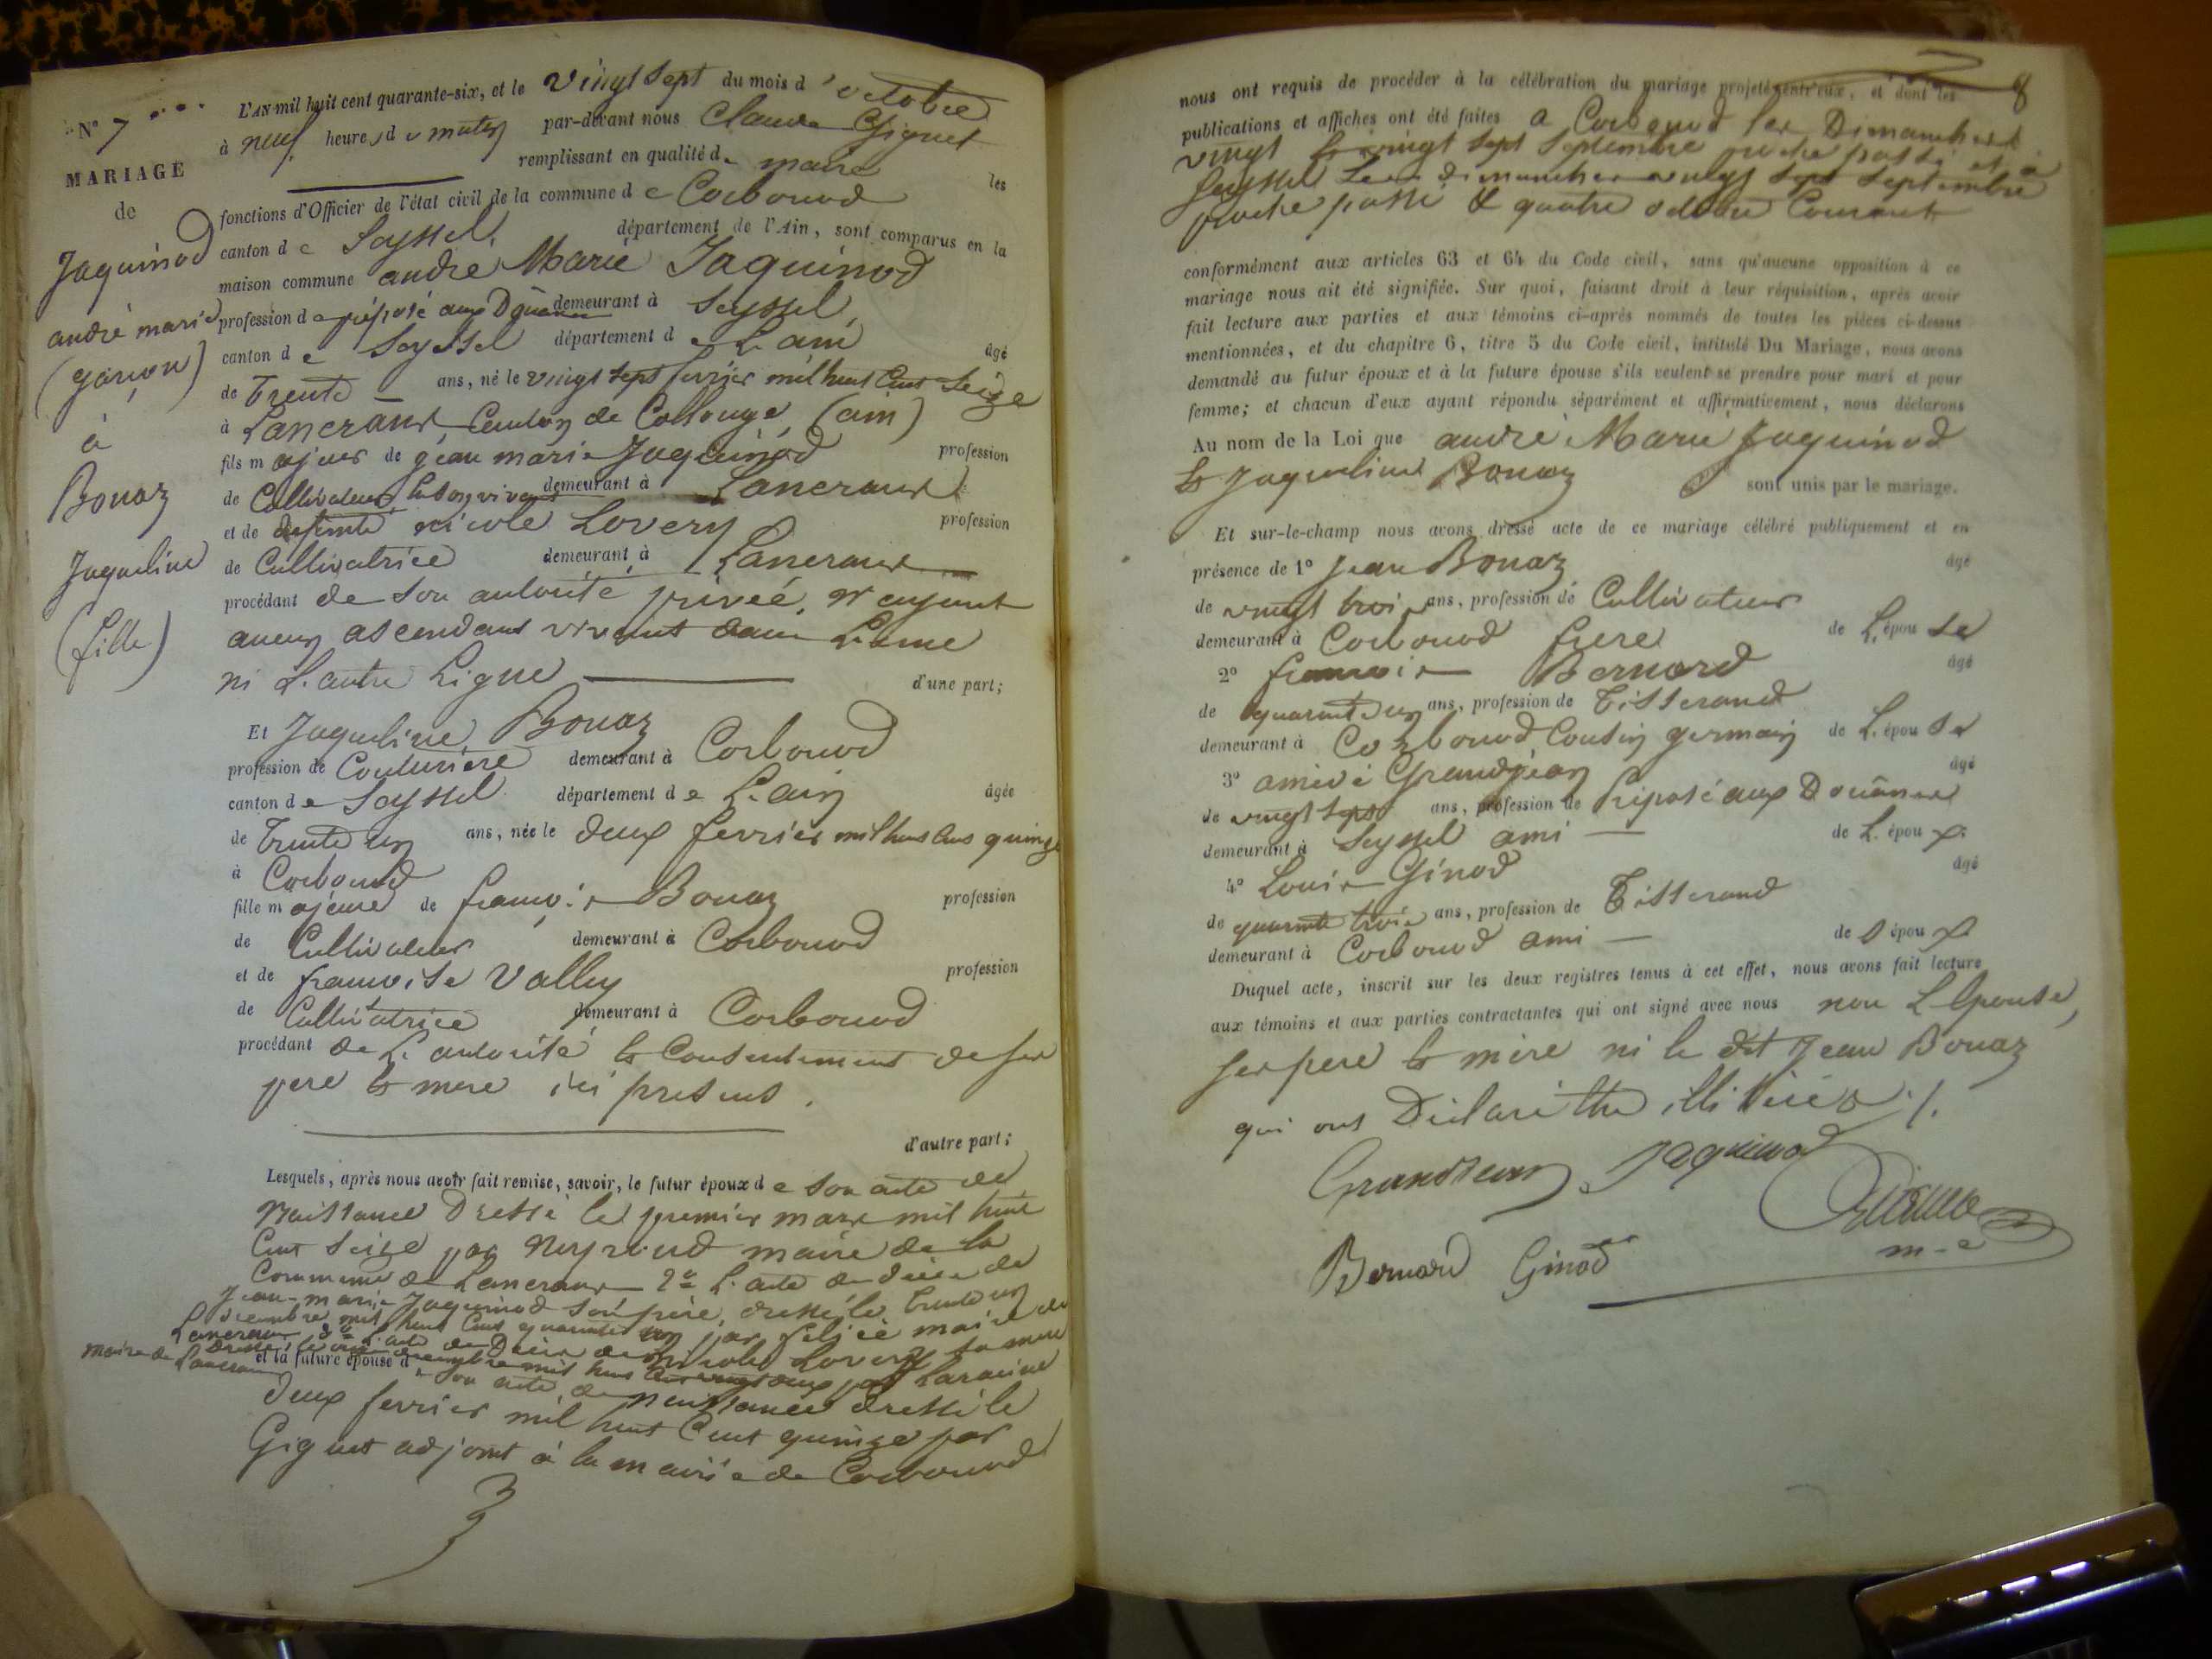 N° 7
MARIAGE
de
Jaquinod
andré marie
(garçon)
à
Bouaz
Jaqueline
(fille)
L'AN mil huit cent quarante-six, et le vingt sept du mois d'octobre
à neuf heures du matin par-devant nous Claude Giguet
remplissant en qualité de maire les
fonctions d'Officier de l'état civil de la commune de Corbonod
canton de Seyssel, département de l'Ain, sont comparus en la
maison commune andré Marie Jaquinod
profession de préposé aux Douanes demeurant à Seyssel,
canton de Seyssel département de L'ain âgé
de Trente ans, né le vingt sept fevrier mil huit Cent Seize
à Lancrans Canton de Collonge (ain)
fils majeur de jean marie Jaquinod profession
de Cultivateur de son vivant demeurant à Lancrans
et de défunte nicole Lovery profession
de Cultivatrice demeurant à Lancrans
procédant de son autorité privée, n'ayant
aucun ascendant vivant dans L'une
ni L'autre Ligne d'une part;
Et Jaqueline Bouaz
profession de Couturière demeurant à Corbonod
canton de Seyssel département de L'ain âgée
de Trente un ans, née le deux fevrier mil huit Cent quinze
à Corbonod
fille majeure de françois Bouaz profession
de Cultivateur demeurant à Corbonod
et de françoise Vallin profession
de Cultivatrice demeurant à Corbonod
procédant de L'autorité & Consentement de ses
pere & mere ici présens.
d'autre part;
Lesquels, après nous avoir fait remise, savoir, le futur époux de son acte de
naissance Dressé le premier mars mil huit
Cent Seize par maire de la
Commune de Lancrans 2° L'acte de décès de
Jean-marie Jaquinod son père, dressé le trente un
Décembre mil huit Cent quarante un par maire de
Lancrans 3° L'acte de Décès de Nicole Lovery sa mère
Dressé le décembre mil huit Cent vingt deux par
maire de Lancrans
et la future épouse de son acte de naissance dressé le
deux fevrier mil huit Cent quinze par
Giguet adjoint à la mairie de Corbonod
8
nous ont requis de procéder à la célébration du mariage projeté entr'eux, et dont les
publications et affiches ont été faites a Corbonod les Dimanches
vingt & vingt sept Septembre proche passé et à
Seyssel Les dimanches vingt sept septembre
proche passé & quatre octobre Courant
conformément aux articles 63 et 64 du Code civil, sans qu'aucune opposition à ce
mariage nous ait été signifiée. Sur quoi, faisant droit à leur réquisition, après avoir
fait lecture aux parties et aux témoins ci-après nommés de toutes les pièces ci-dessus
mentionnées, et du chapitre 6, titre 5 du Code civil, intitulé Du Mariage, nous avons
demandé au futur époux et à la future épouse s'ils veulent se prendre pour mari et pour
femme; et chacun d'eux ayant répondu séparément et affirmativement, nous déclarons
Au nom de la Loi que andré Marie Jaquinod
& Jaqueline Bouaz sont unis par le mariage.
Et sur-le-champ nous avons dressé acte de ce mariage célébré publiquement et en
présence de 1° Jean Bouaz âgé
de vingt trois ans, profession de Cultivateur
demeurant à Corbonod frere de L'épouse
2° françois Bernard âgé
de quarante un ans, profession de Tisserand
demeurant à Corbonod Cousin germain de L'épouse
3° amédé Grandjean âgé
de vingt sept ans, profession de Préposé aux Douanes
demeurant à Seyssel ami de L'époux
4° Louis Ginod âgé
de quarante trois ans, profession de Tisserand
demeurant à Corbonod ami de l'époux
Duquel acte, inscrit sur les deux registres tenus à cet effet, nous avons fait lecture
aux témoins et aux parties contractantes qui ont signé avec nous non L'Epouse,
ses pere & mère ni le dit Jean Bouaz
qui ont Déclaré être illitérés ./.
Grandjean Jaquinod
Bernard Ginod